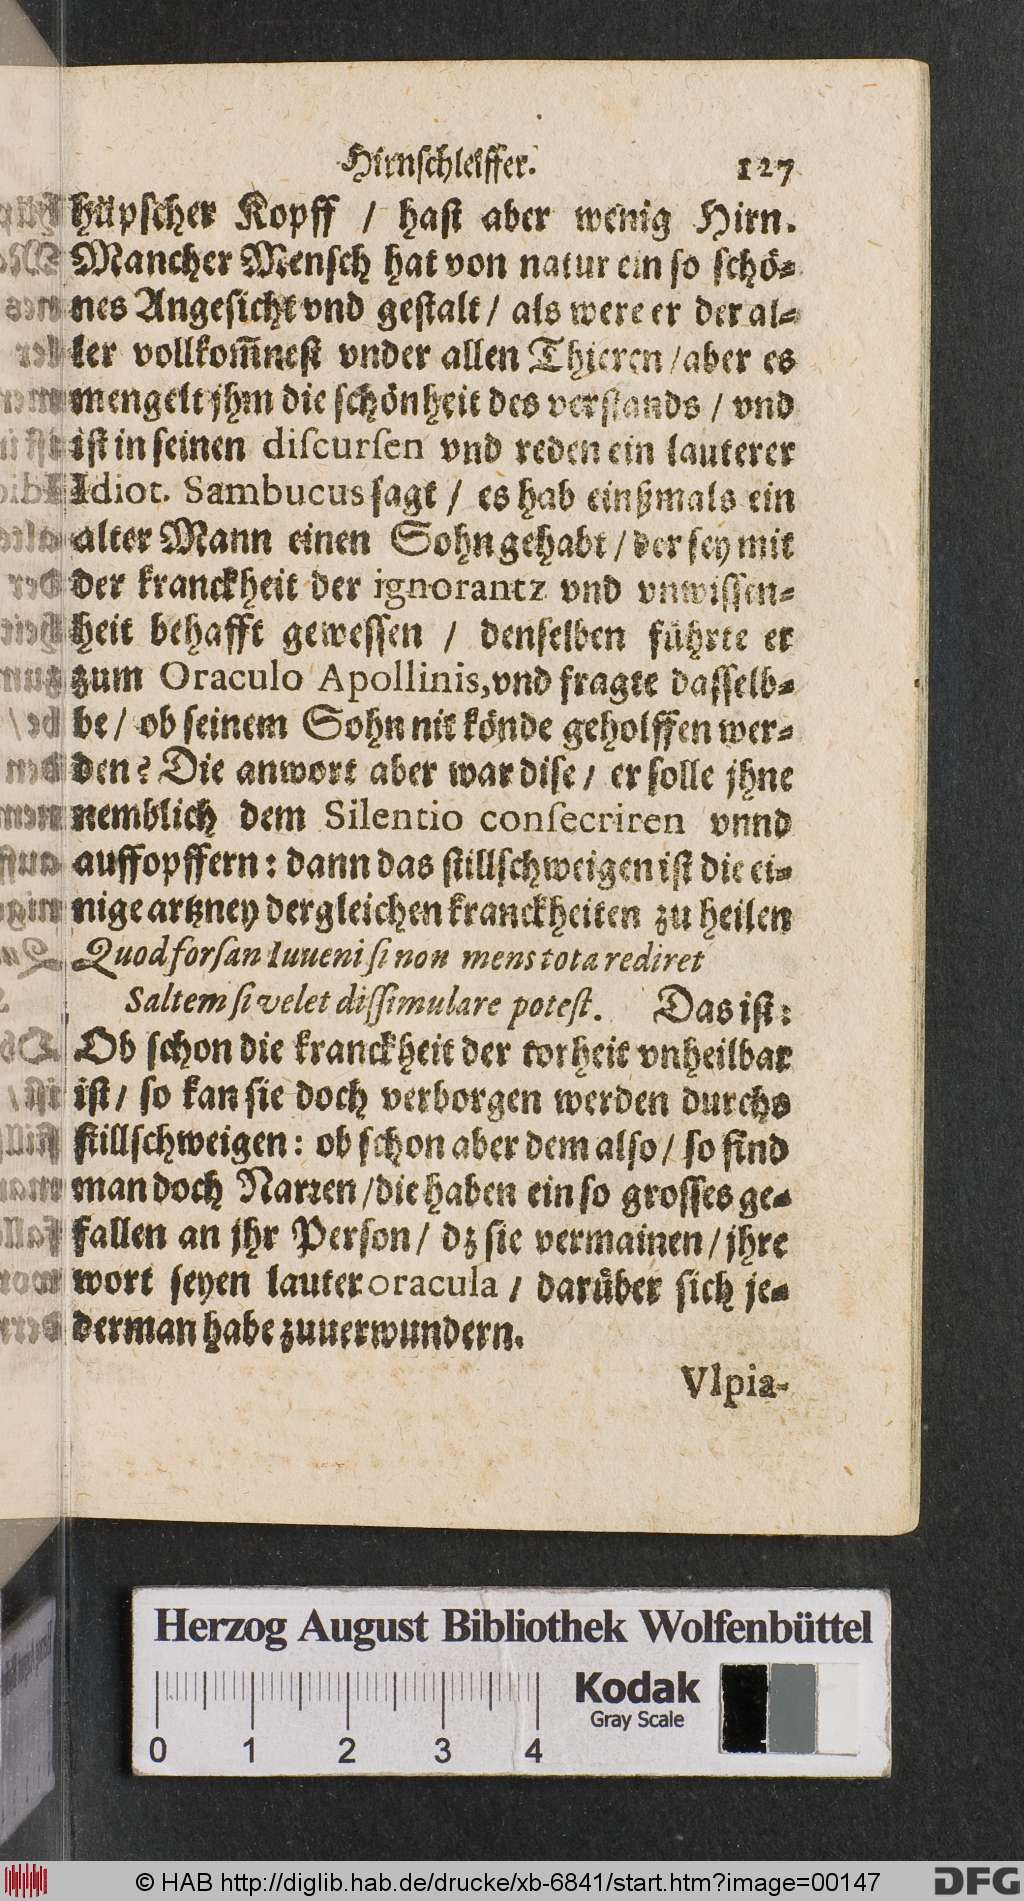 Hirnschleiffer. 127
hüpscher Kopff / hast aber wenig Hirn.
Mancher Mensch hat von natur ein so schö⸗
nes Angesicht vnd gestalt / als were er der al⸗
ler vollkom̄nest vnder allen Thieren / aber es
mengelt jhm die schönheit des verstands / vnd
ist in seinen discursen vnd reden ein lauterer
Idiot. Sambucus sagt / es hab einßmals ein
alter Mann einen Sohn gehabt / der sey mit
der kranckheit der ignorantz vnd vnwissen⸗
heit behafft gewessen / denselben führte er
zum Oraculo Apollinis, vnd fragte dasselb⸗
be / ob seinem Sohn nit könde geholffen wer⸗
den? Die anwort aber war dise / er solle jhne
nemblich dem Silentio consecriren vnnd
auffopffern: dann das stillschweigen ist die ei⸗
nige artzney dergleichen kranckheiten zu heilen
Quod forsan Iuueni si non mens tota rediret
Saltem si velet dissimulare potest. Das ist:
Ob schon die kranckheit der torheit vnheilbar
ist / so kan sie doch verborgen werden durchs
stillschweigen: ob schon aber dem also / so find
man doch Narren / die haben ein so grosses ge⸗
fallen an jhr Person / dz sie vermainen / jhre
wort seyen lauter oracula / darüber sich je⸗
derman habe zuuerwundern.
Vlpia-
Herzog August Bibliothek Wolfenbüttel
Kodak
Gray Scale
0 1 2 3 4
© HAB http://diglib.hab.de/drucke/xb-6841/start.htm?image=00147
DFG